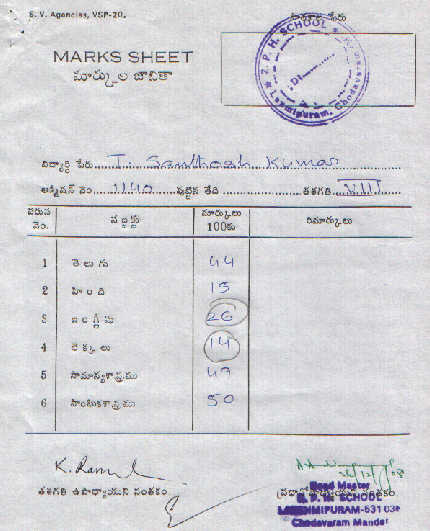 S. V. Agencies, VSP-20.
పాఠశాల పేరు
MARKS SHEET
మార్కుల జాబితా
Z. P. H. SCHOOL
Laxmipuram, Chodavaram
విద్యార్థి పేరు T. Santhosh Kumar
అడ్మిషన్ నెం. 1140 పుట్టిన తేది తరగతి VIII
వరుస నెం. సబ్జక్టు మార్కులు 100కు రిమార్కులు
1 తెలుగు 44
2 హింది 15
3 ఇంగ్లీషు 26
4 లెక్కలు 14
5 సామాన్యశాస్త్రము 47
6 సాంఘికశాస్త్రము 50
K. Ramul
తరగతి ఉపాధ్యాయుని సంతకం
ప్రధానోపాధ్యాయుని సంతకం
Head Master
Z. P. H. SCHOOL
LAXMIPURAM-531 036
Chodavaram Mandal